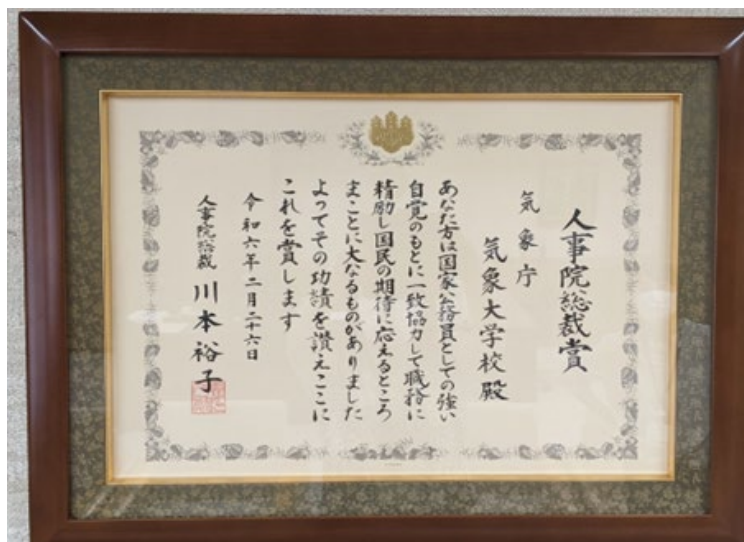 人事院総裁賞
気象庁
気象大学校殿
あなた方は国家公務員としての強い
自覚のもとに一致協力して職務に
精励し国民の期待に応えるところ
まことに大なるものがありました
よってその功績を讃えここに
これを賞します
令和六年二月二十六日
人事院総裁 川本裕子